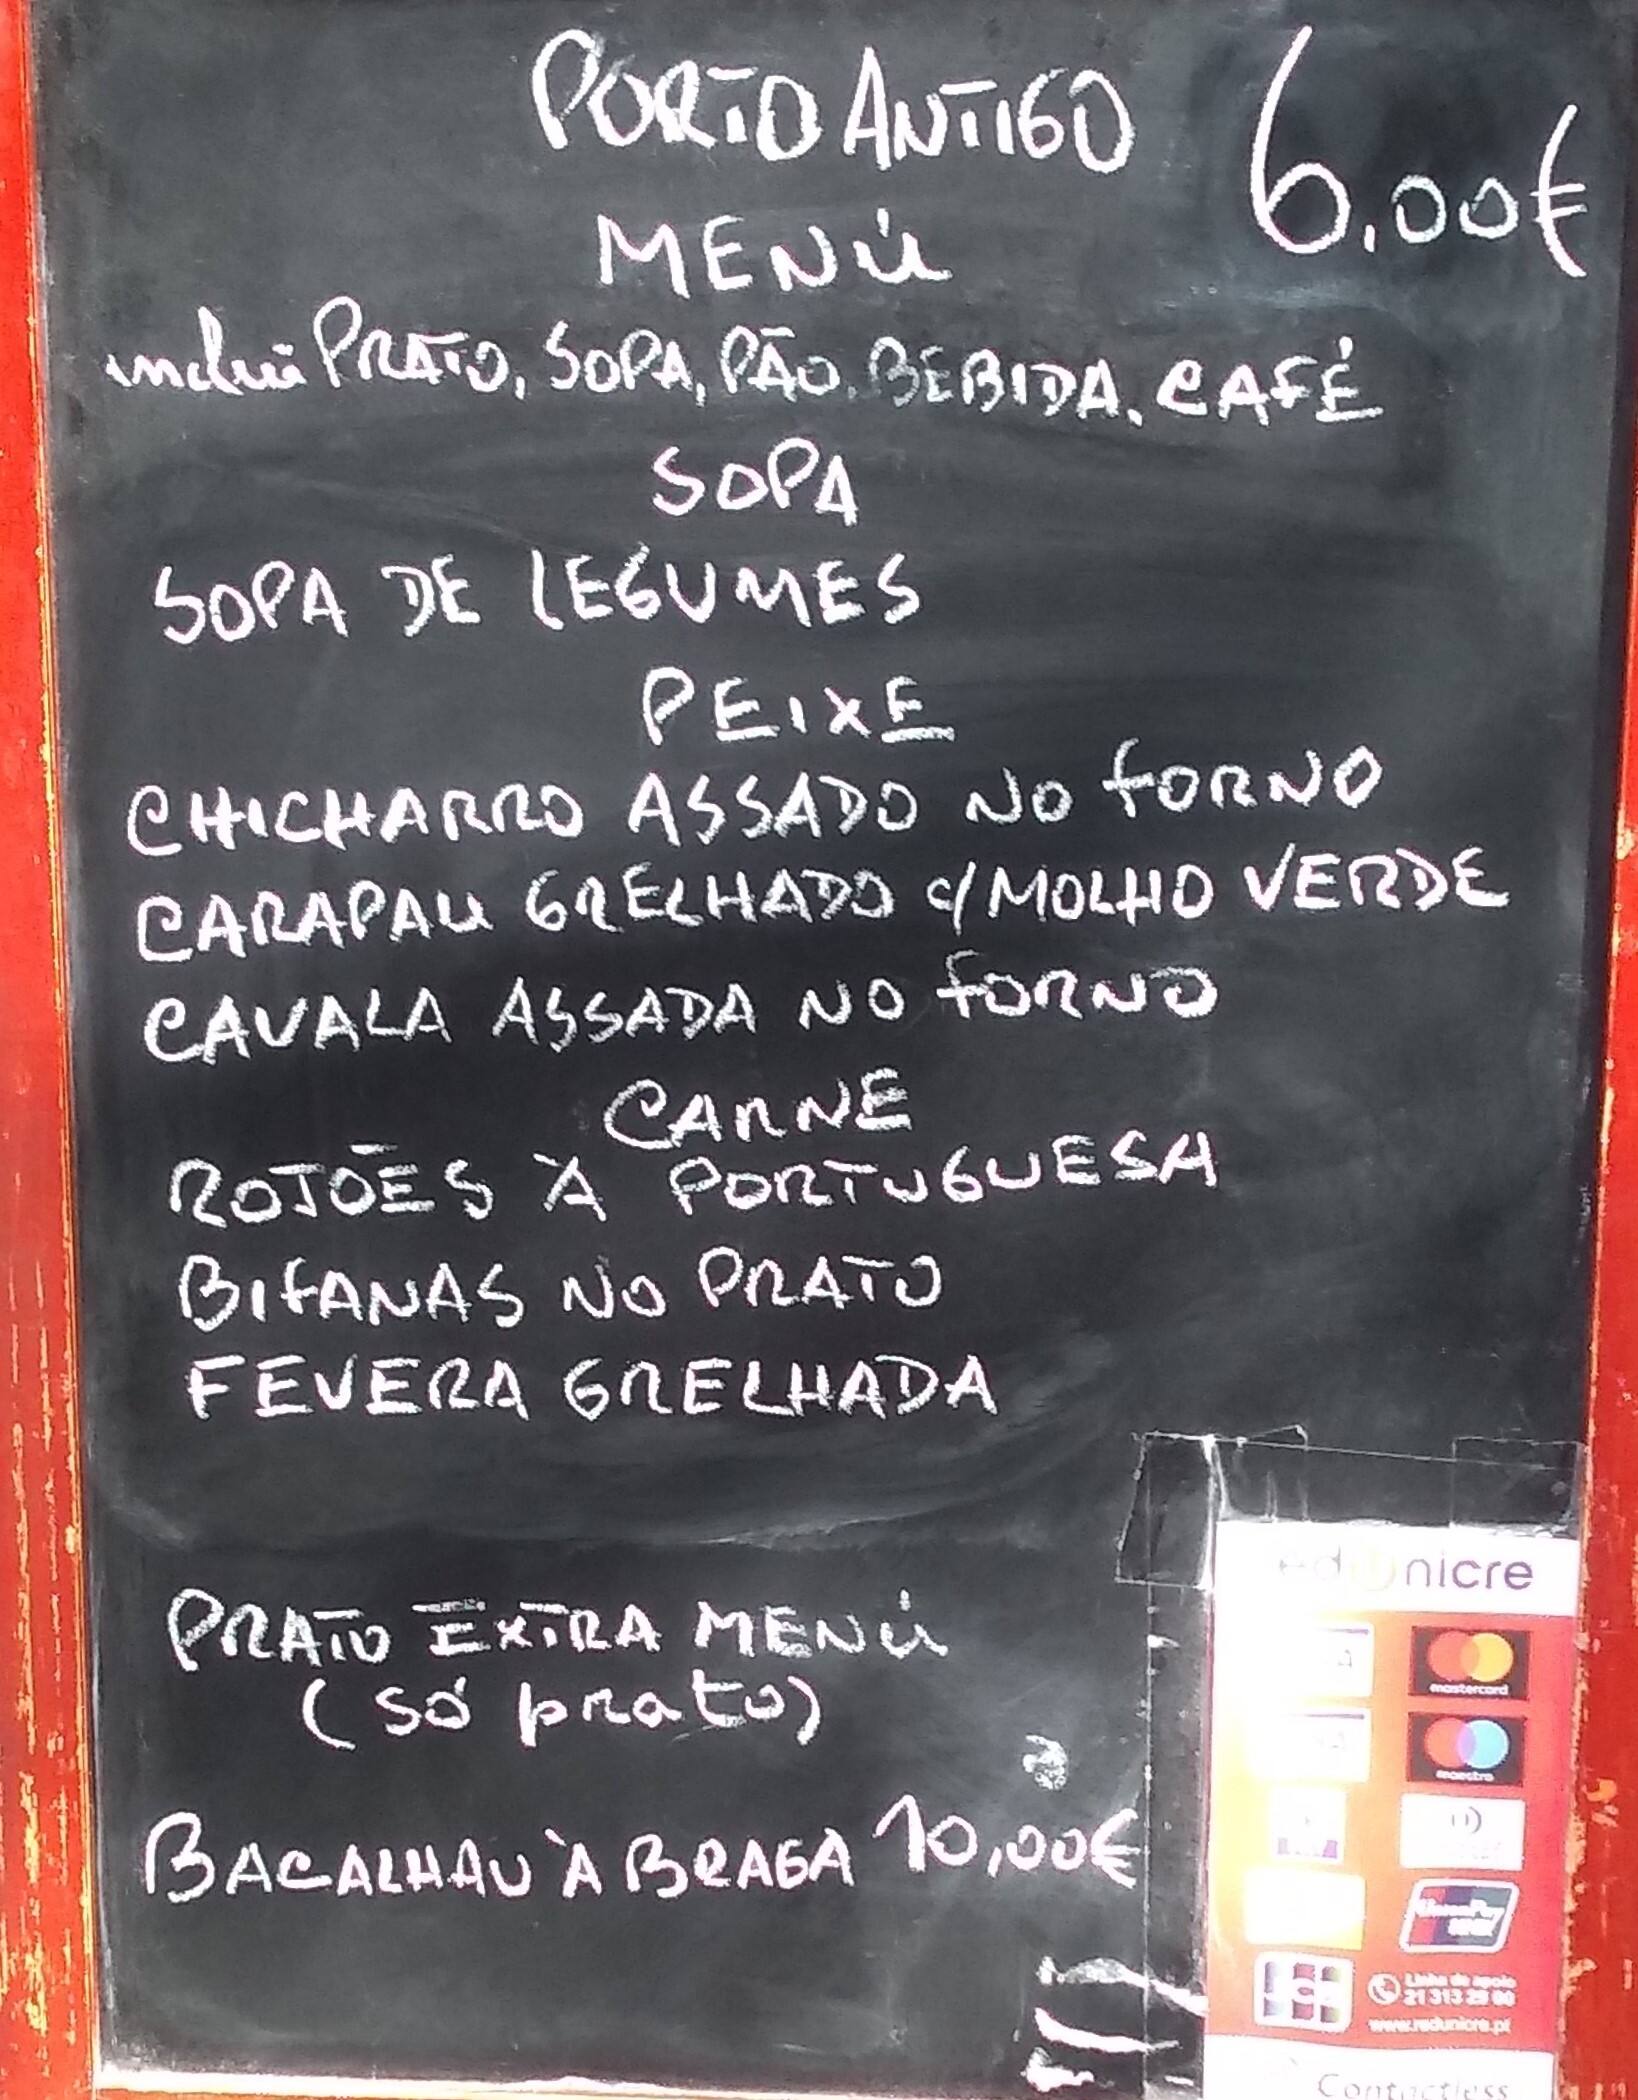 PORTO ANTIGO 6.00€
MENÚ
inclui PRATO, SOPA, PÃO, BEBIDA, CAFÉ
SOPA
SOPA DE LEGUMES
PEIXE
CHICHARRO ASSADO NO FORNO
CARAPAU GRELHADO C/MOLHO VERDE
CAVALA ASSADA NO FORNO
CARNE
ROJÕES À PORTUGUESA
BIFANAS NO PRATO
FEVERA GRELHADA
PRATO EXTRA MENÚ
(só prato)
BACALHAU À BRAGA 10,00€
redunicre
mastercard
maestro
UnionPay
JCB
Linha de apoio
21 313 29 00
www.redunicre.pt
Contactless